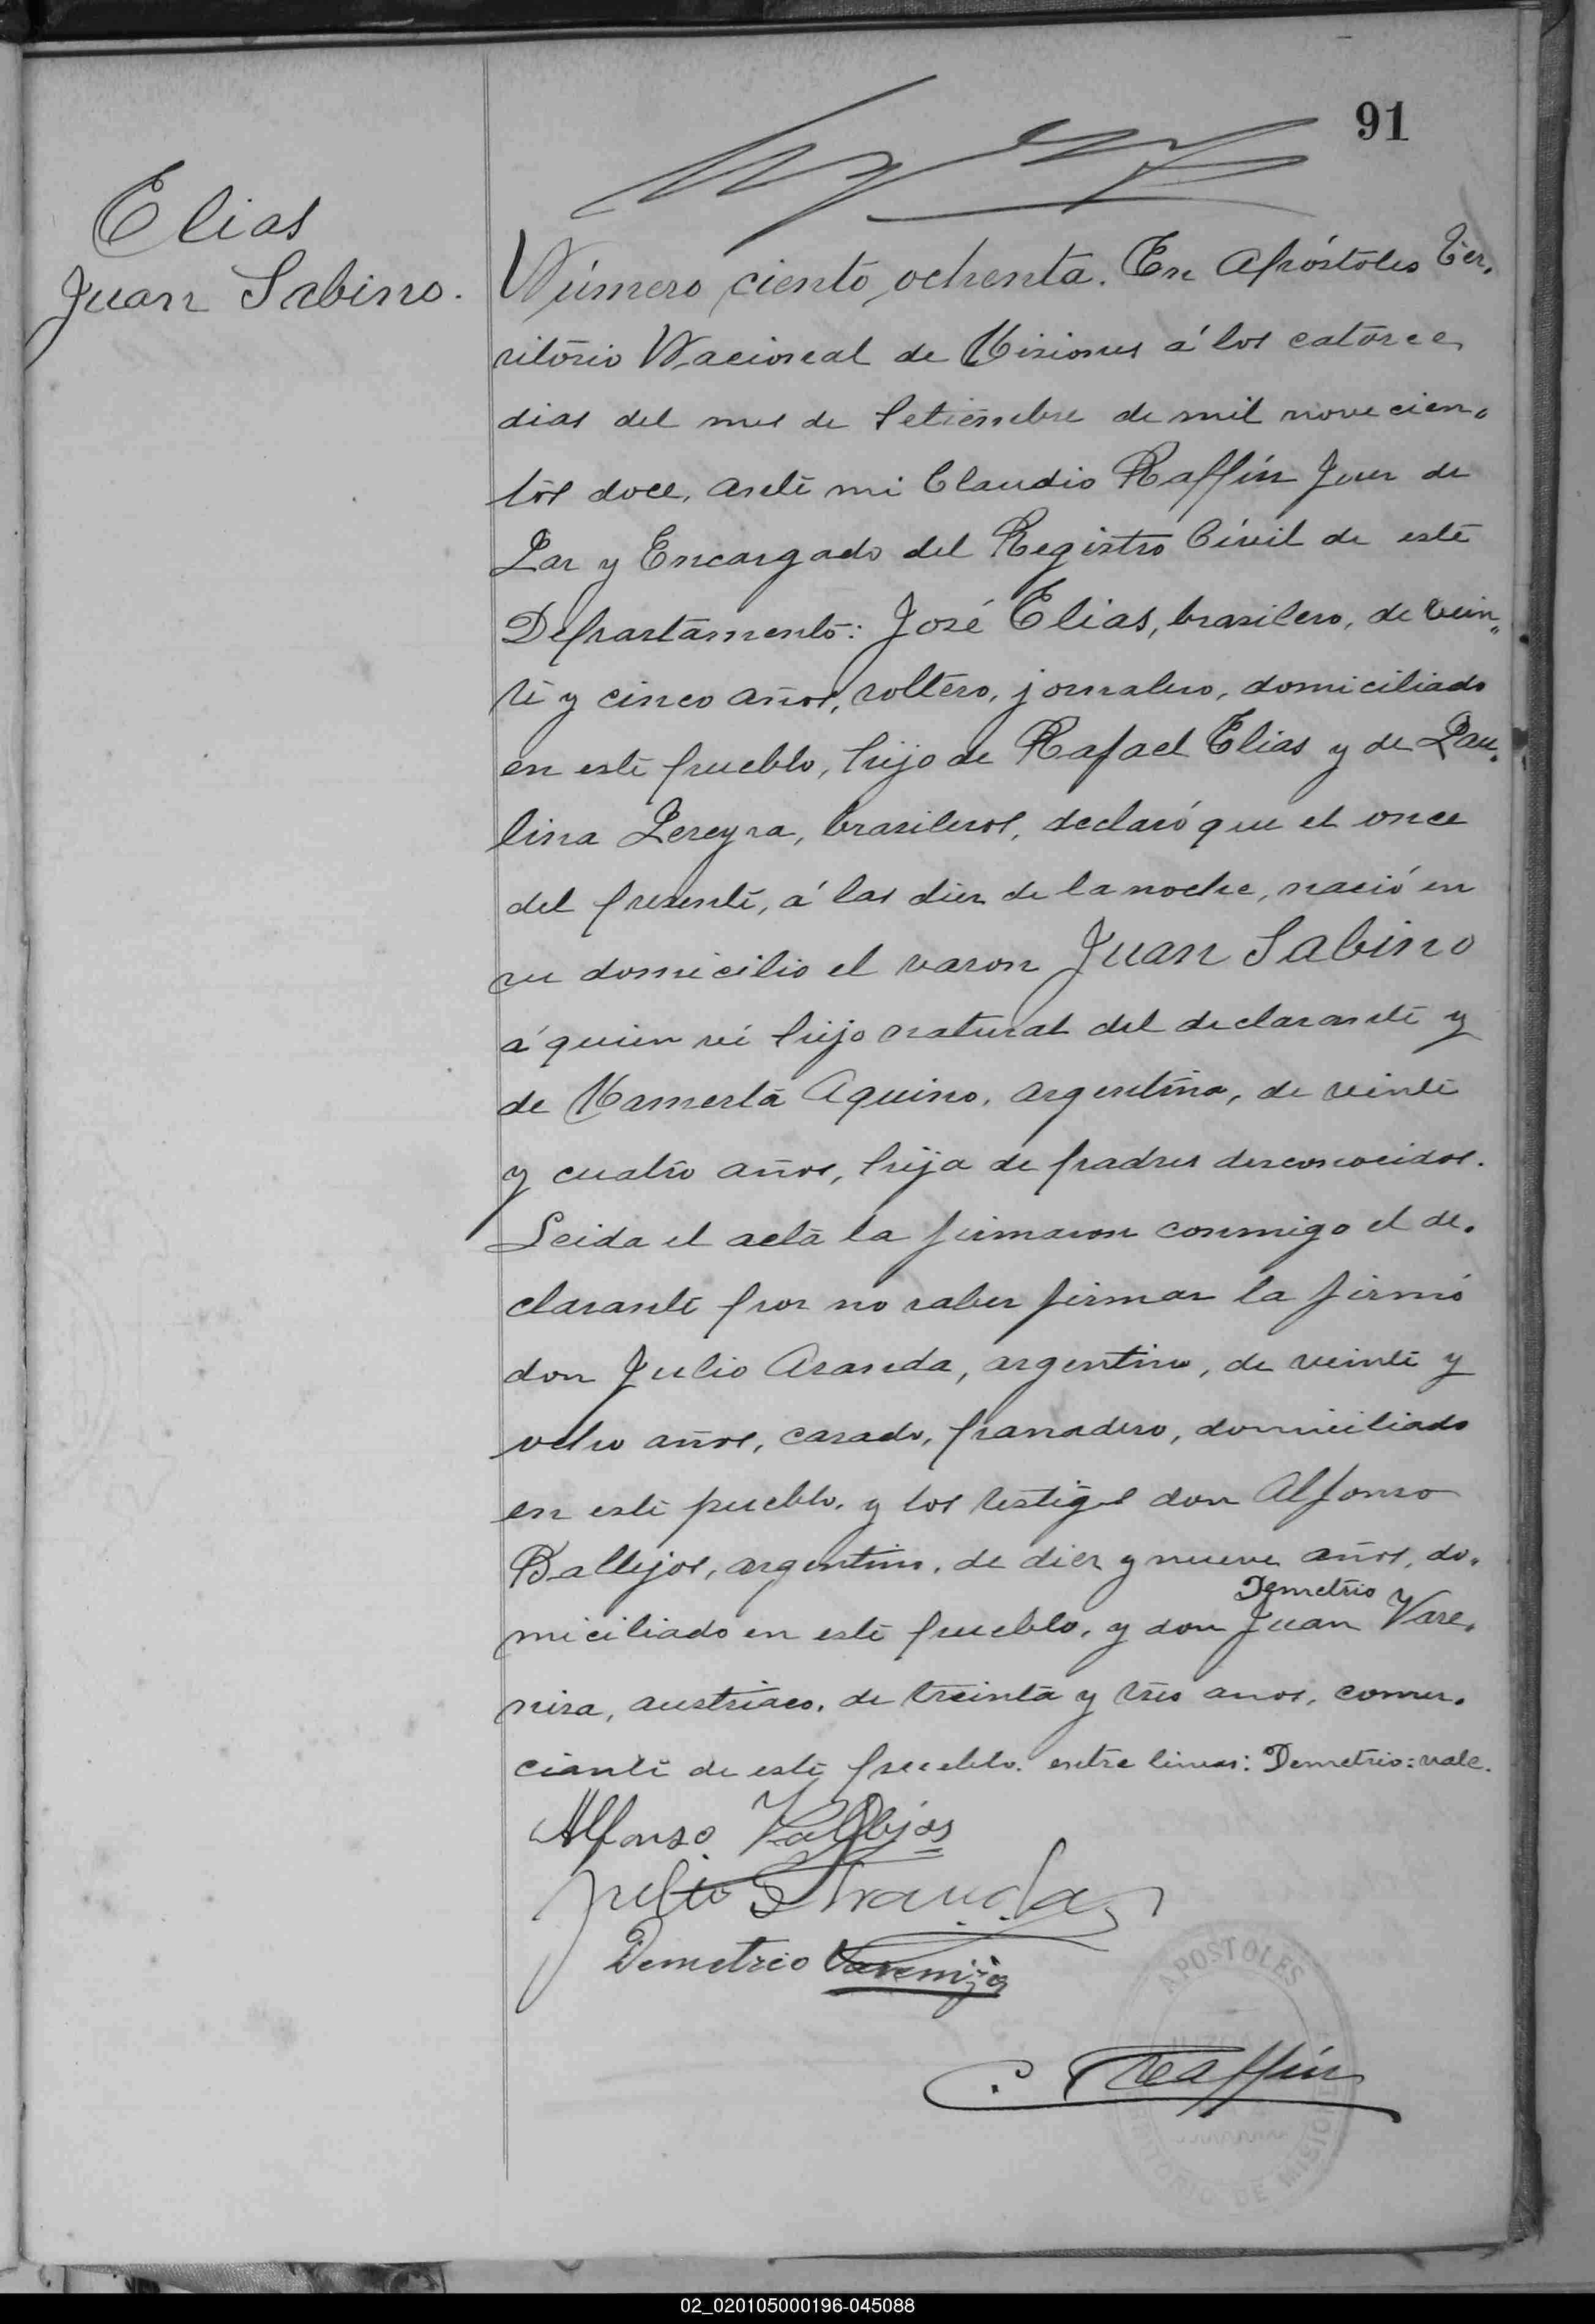 91
Elias
Juan Sabino.
Número ciento ochenta. En Apóstoles Ter-
ritorio Nacional de Misiones á los catorce
dias del mes de Setiembre de mil novecien-
tos doce, ante mi Claudio Raffin Juez de
Paz y Encargado del Registro Civil de este
Departamento: José Elias, brasilero, de vein-
te y cinco años, soltero, jornalero, domiciliado
en este pueblo, hijo de Rafael Elias y de Pau-
lina Pereyra, brasileros, declaró que el once
del presente, á las diez de la noche, nació en
su domicilio el varon Juan Sabino
á quien ví hijo natural del declarante y
de Mamerta Aquino, argentina, de veinte
y cuatro años, hija de padres desconocidos.
Leida el acta la firmaron conmigo el de-
clarante por no saber firmar la firmó
don Julio Aranda, argentino, de veinte y
ocho años, casado, panadero, domiciliado
en este pueblo, y los testigos don Alfonso
Ballejos, argentino, de diez y nueve años, do-
Demetrio
miciliado en este pueblo, y don Juan Vare-
nisa, austriaco, de treinta y tres anos, comer-
ciante de este pueblo. entre lineas: Demetrio: vale.
Alfonso Vallejos
Julio Aranda
Demetrio Vareniza
C. Raffin
APOSTOLES
TERRITORIO DE MISIONES
02_020105000196-045088